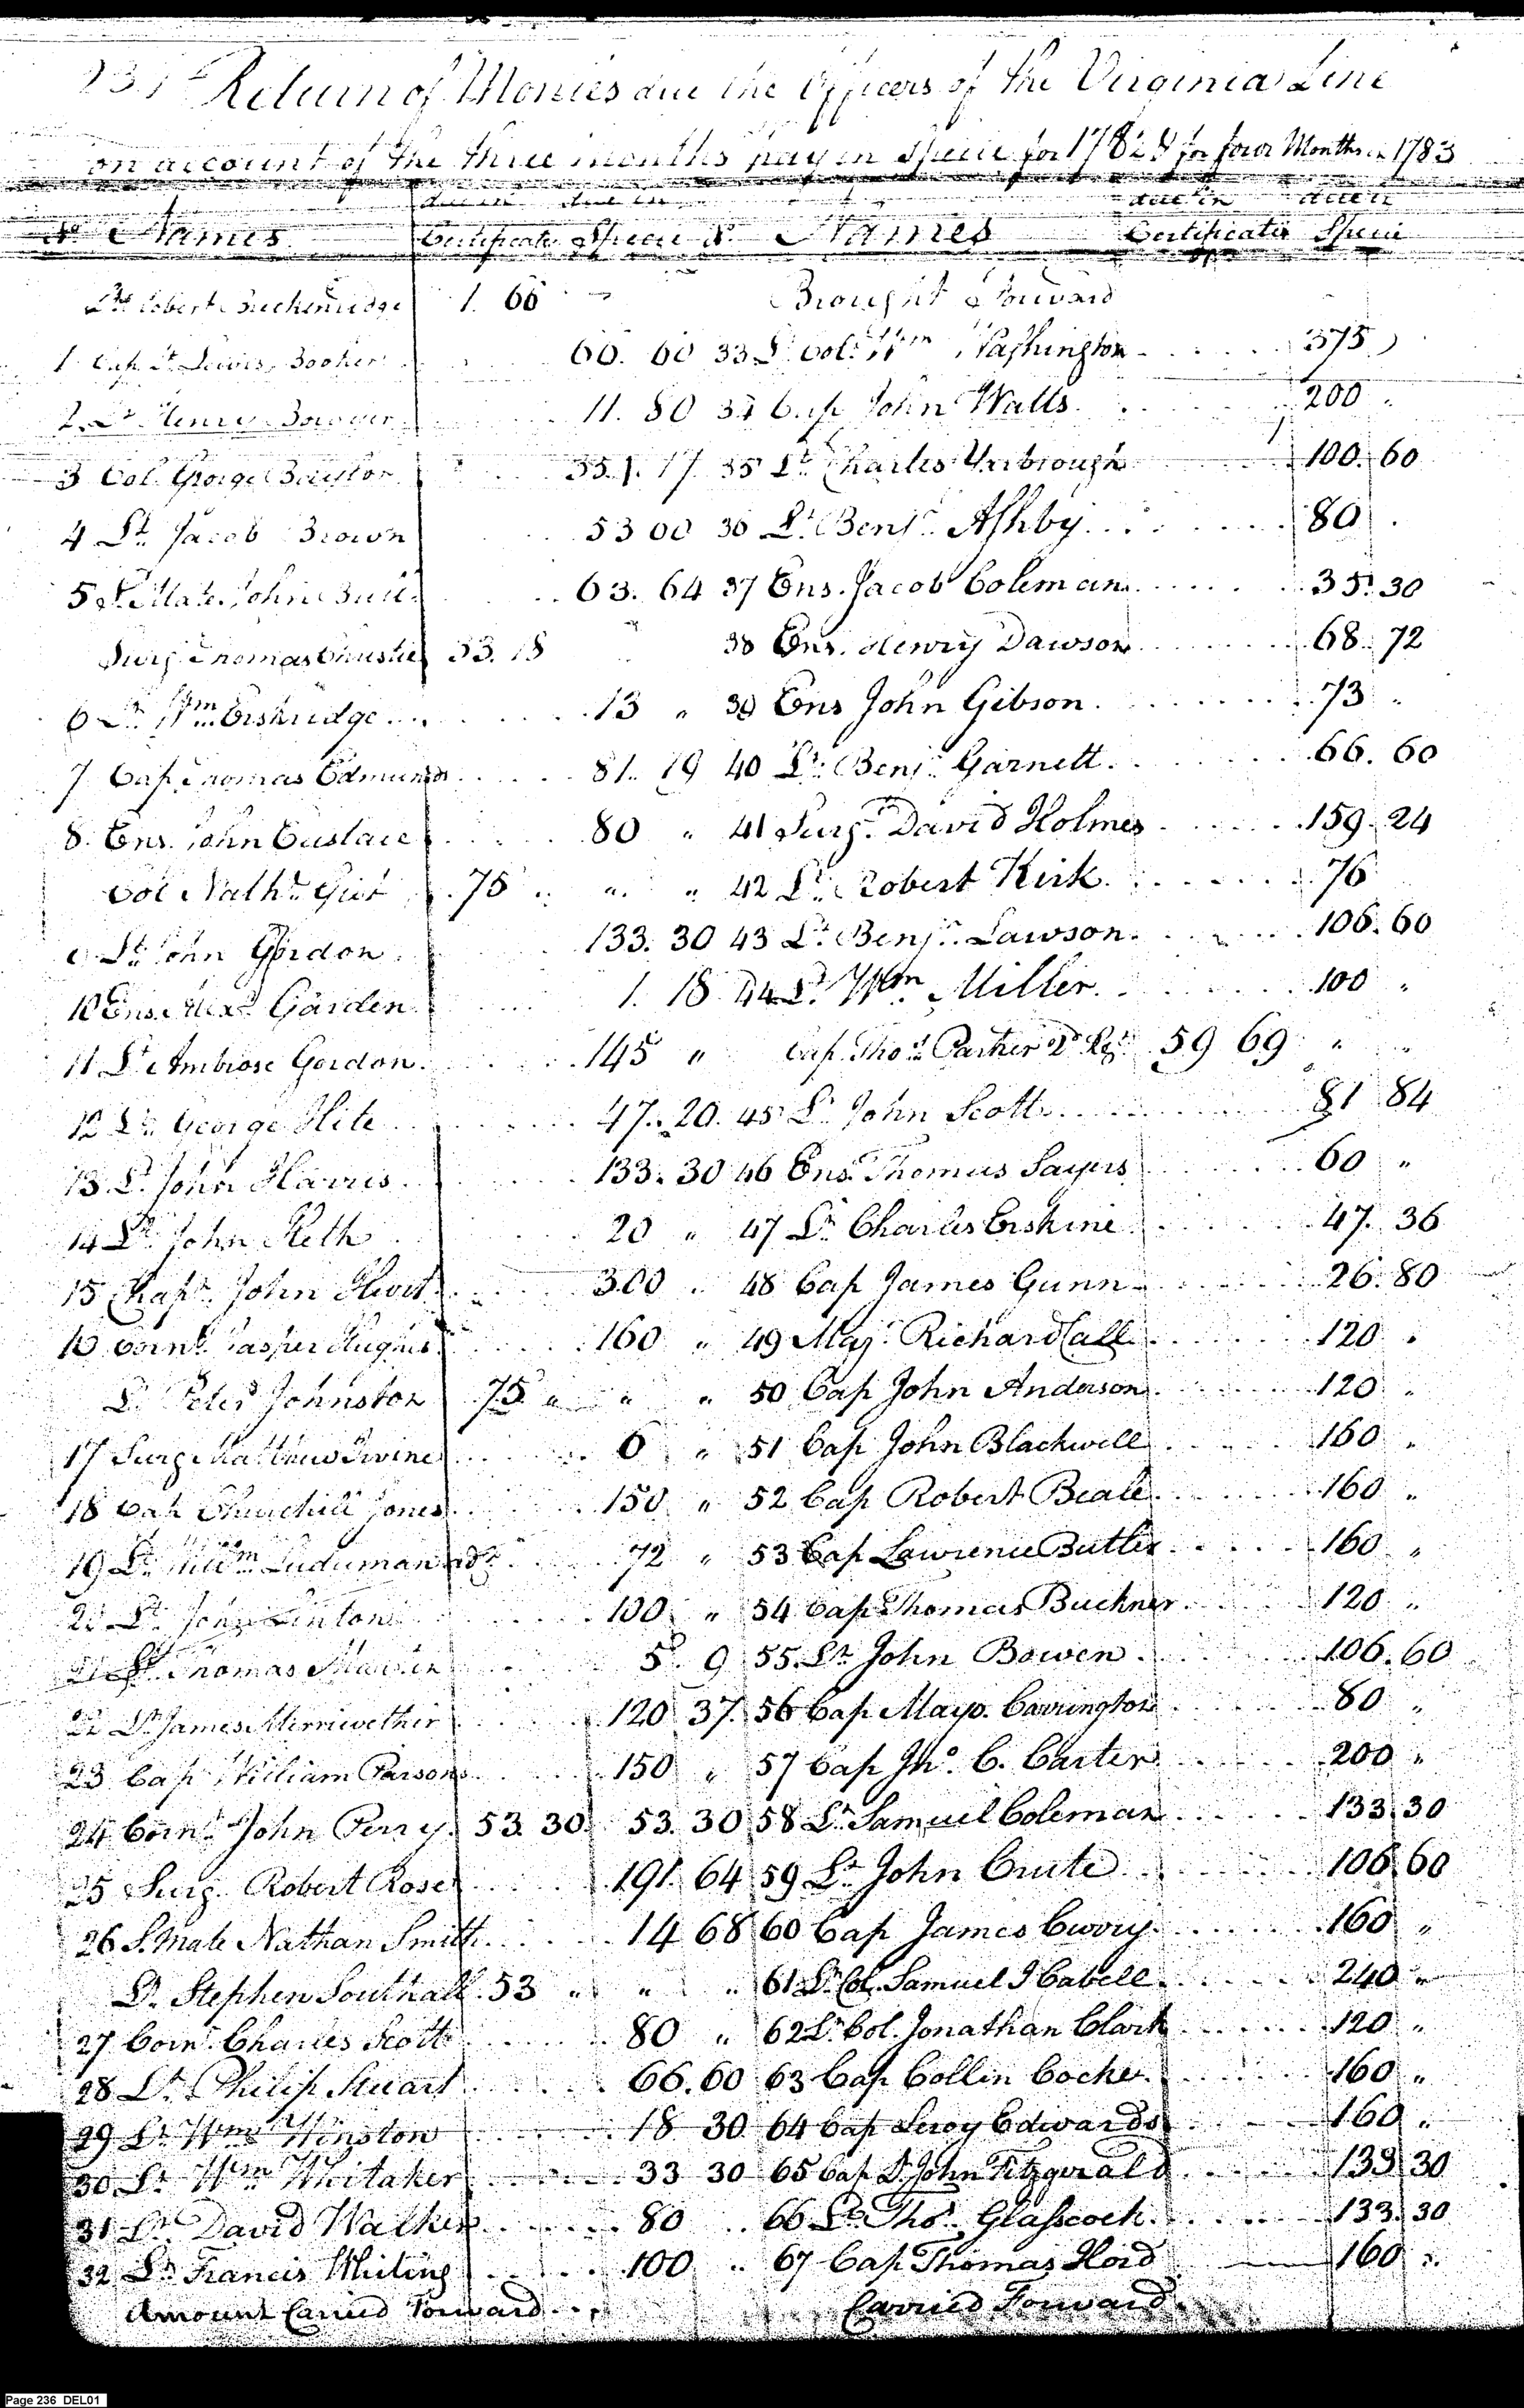 231 Return of Monies due the Officers of the Virginia Line
on account of the three months pay in Specie for 1782 & for four Months in 1783
No Names due in Certificates due in Specie No Names due in Certificates due in Specie
Lt Robert Breckenridge 1. 66
1 Cap Lt Lewis Booker 66. 60
2 Lt Henry Bowyer 11. 80
3 Col. George 351. 17
4 Lt Jacob Brown 53 00
5 S. Mate John Bull 63. 64
Surg Thomas Christie 53. 18
6 Lt Wm Eskridge 13 "
7 Cap Thomas Edmunds 81. 19
8 Ens. John Eustace 80 "
Col Nathl Gist 75 " " "
9 Lt John Gordon 133. 30
10 Ens. Alexr Garden 1. 18
11 Lt Ambrose Gordon 145 "
12 Lt George Hite 47. 20
13 Lt John Harris 133. 30
14 Lt John Keth 20 "
15 Chapn John Hurt 300 "
16 Cornt Jasper Hughes 160 "
Lt Peter Johnston 75 " " "
17 Surg Matthew Irvine 6 "
18 Cap Churchill Jones 150 "
19 Lt Willm Luduman 72 "
20 Lt John Linton 100 "
21 Lt Thomas 5 9
22 Lt James Merriwether 120 37
23 Cap William Parsons 150 "
24 Cornt John Perry 53. 30 53. 30
25 Surg. Robert Rose 191. 64
26 S. Mate Nathan Smith 14 68
Lt Stephen Southall 53 " " "
27 Cornt Charles Scott 80 "
28 Lt Philip Stuart 66. 60
29 Lt Wm Winston 18 30
30 Lt Wm Whitaker 33 30
31 Lt David Walker 80
32 Lt Francis Whiting 100 "
Amount Carried Forward
Brought Forward
33 Lt Colo Wm Washington 375
34 Cap John Watts 200
35 Lt Charles Yarbrough 100. 60
36 Lt Benjn Ashby 80
37 Ens. Jacob Coleman 35. 30
38 Ens. Henry Dawson 68. 72
39 Ens John Gibson 73 "
40 Lt Benjn Garnett 66. 60
41 Surgn David Holmes 159. 24
42 Lt Robert Kirk 76
43 Lt Benjn Lawson 106. 60
44 Lt Wm Miller 100 "
Cap. Thos Parker 2d Rgt 59 69 " "
45 Lt John Scott 81 84
46 Ens. Thomas Sayers 60 "
47 Lt Charles Erskine 47. 36
48 Cap James Gunn 26. 80
49 Majr Richard Call 120 "
50 Cap John Anderson 120 "
51 Cap John Blackwell 160 "
52 Cap Robert Beale 160 "
53 Cap Lawrence Butler 160 "
54 Cap Thomas Buckner 120 "
55 Lt John Bowen 106. 60
56 Cap Mayo Carrington 80 "
57 Cap Jno. C. Carter 200 "
58 Lt Samuel Coleman 133. 30
59 Lt John Crute 106. 60
60 Cap James Curry 160 "
61 Lt Col. Samuel J Cabell 240 "
62 Lt Col. Jonathan Clark 120 "
63 Cap Collin Cocke 160 "
64 Cap Leroy Edwards 160 "
65 Cap Lt John Fitzgerald 133 30
66 Lt Thos Glasscock 133. 30
67 Cap Thomas Hord 160 "
Carried Forward
Page 236 DEL01